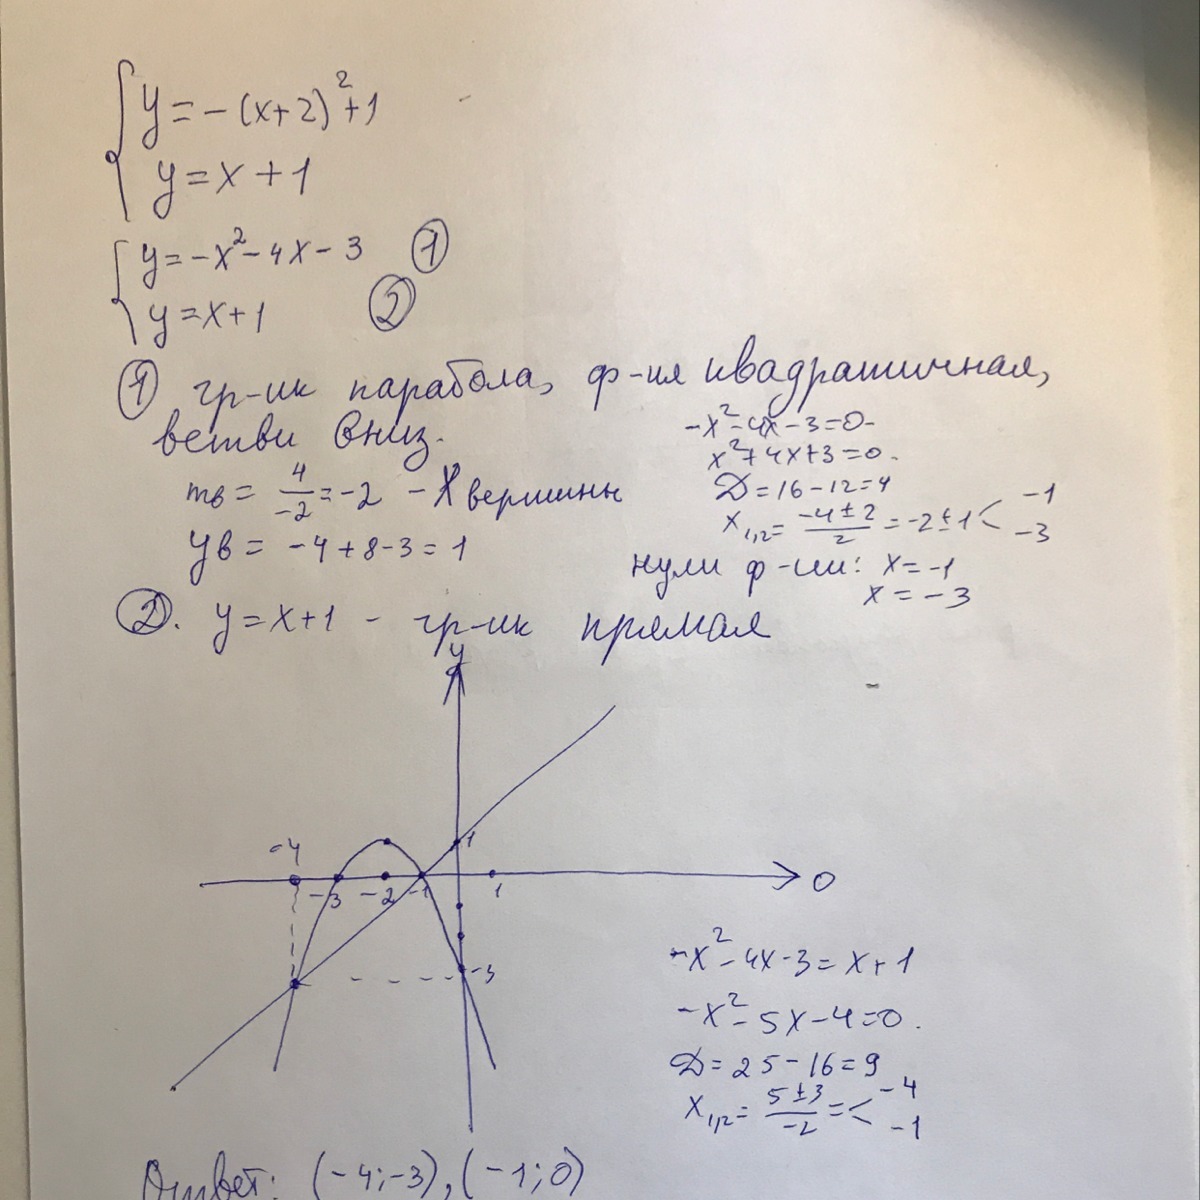 y = -(x+2)² + 1
y = x + 1
y = -x² - 4x - 3 ①
y = x + 1 ②
① гр-ик парабола, ф-ия квадратичная,
ветви вниз.
mв = 4/-2 = -2 - X вершины
yв = -4 + 8 - 3 = 1
-x² - 4x - 3 = 0
x² + 4x + 3 = 0
D = 16 - 12 = 4
x₁,₂ = (-4 ± 2)/2 = -2 ± 1 < -1 -3
нули ф-ии: x = -1
x = -3
②. y = x + 1 - гр-ик прямая
y
1
-4
-3 -2 -1 1 0
-3
-x² - 4x - 3 = x + 1
-x² - 5x - 4 = 0.
D = 25 - 16 = 9
x₁,₂ = (5 ± 3)/-2 = < -4 -1
Ответ: (-4; -3), (-1; 0)